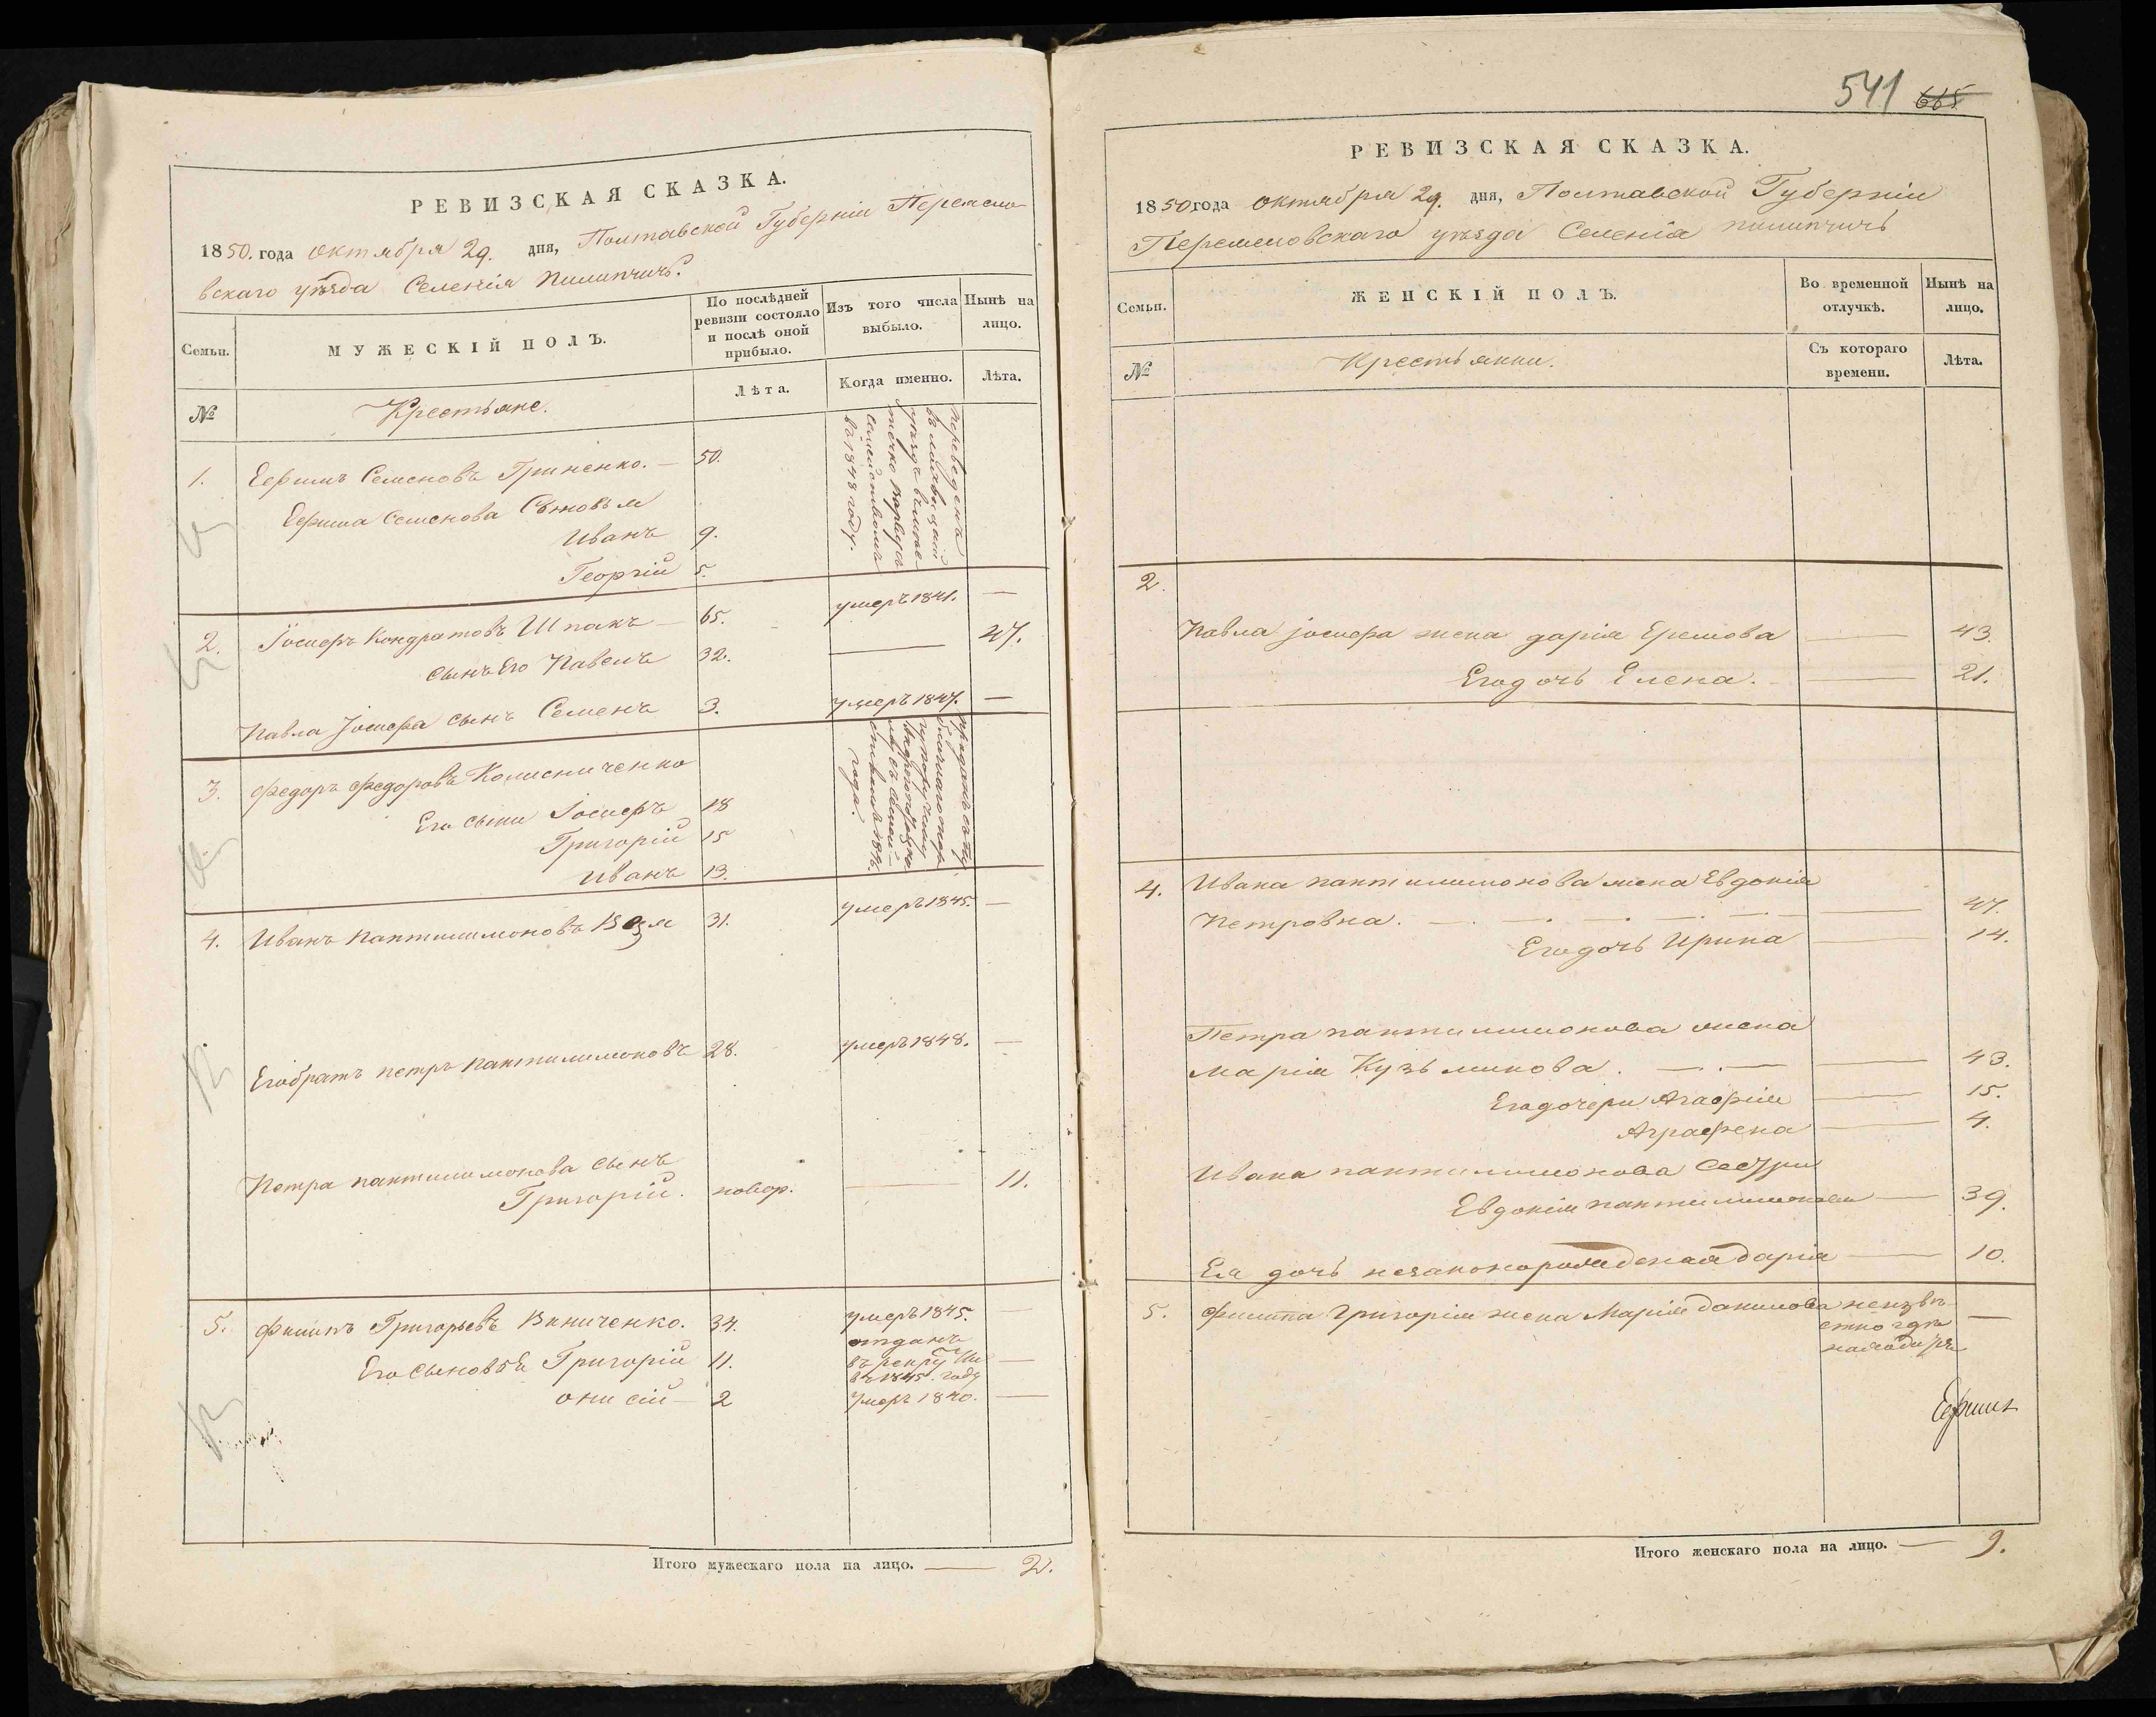 РЕВИЗСКАЯ СКАЗКА.
1850. года октября 29. дня, Полтавской Губерніи Переясло-
вскаго уѣзда Селенія Пилипчичъ.
Семьи.
МУЖЕСКІЙ ПОЛЪ.
По послѣдней ревизіи состояло и послѣ оной прибыло.
Изъ того числа выбыло.
Нынѣ на лицо.
№
Крестьяне.
Лѣта.
Когда именно.
Лѣта.
1. Ефимъ Семеновъ Гриненко. — 50.
Ефима Семенова Сыновья
Иванъ 9.
Георгій 5.
переведенъ
въ
уѣздъ въ мѣсте
течко
Семействомъ
въ 1848 году.
2. Іосифъ Кондратовъ Шпакъ — 65. умеръ 1841. —
сынъ Его Павелъ 32. — 47.
Павла Іосифа сынъ Семенъ 3. умеръ 1847. —
3. Федоръ Федоровъ Колисниченко
Его сыни Іосифъ 18
Григорій 15
Иванъ 13.
года.
4. Иванъ Пантилимоновъ 31. умеръ 1845. —
Его братъ Петръ Пантилимоновъ 28. умеръ 1848. —
Петра Пантилимонова Сынъ
Григорій. новор. — 11.
5. Филипъ Григорьевъ Виниченко. 34. умеръ 1845. —
Его Сыновья Григорій 11. отданъ
въ рекруты —
въ 1845. году
Онисій — 2 умеръ 1840. —
Итого мужескаго пола на лицо. — 2.
541 665.
РЕВИЗСКАЯ СКАЗКА.
1850 года октября 29. дня, Полтавской Губерніи
Переясловскаго уѣзда Селенія Пилипчичъ
Семьи.
ЖЕНСКІЙ ПОЛЪ.
Во временной отлучкѣ.
Нынѣ на лицо.
№
Крестьянки.
Съ котораго времени.
Лѣта.
2.
Павла Іосифа жена Дарія Еремова — 43.
Его дочь Елена. — 21.
4. Ивана Пантилимонова жена Евдокія
Петровна. — 47.
Его дочь Ирина — 14.
Петра Пантилимонова жена
Марія Кузьминова. — 43.
Его дочери Агафія — 15.
Аграфена — 4.
Ивана Пантилимонова Сестри
Евдокія Пантилимонова — 39.
Ея дочь незаконорожденая Дарія — 10.
5. Филипа Григорія жена Марія Данилова неизвѣ- —
стно гдѣ
находитъся
Ефимъ
Итого женскаго пола на лицо. — 9.